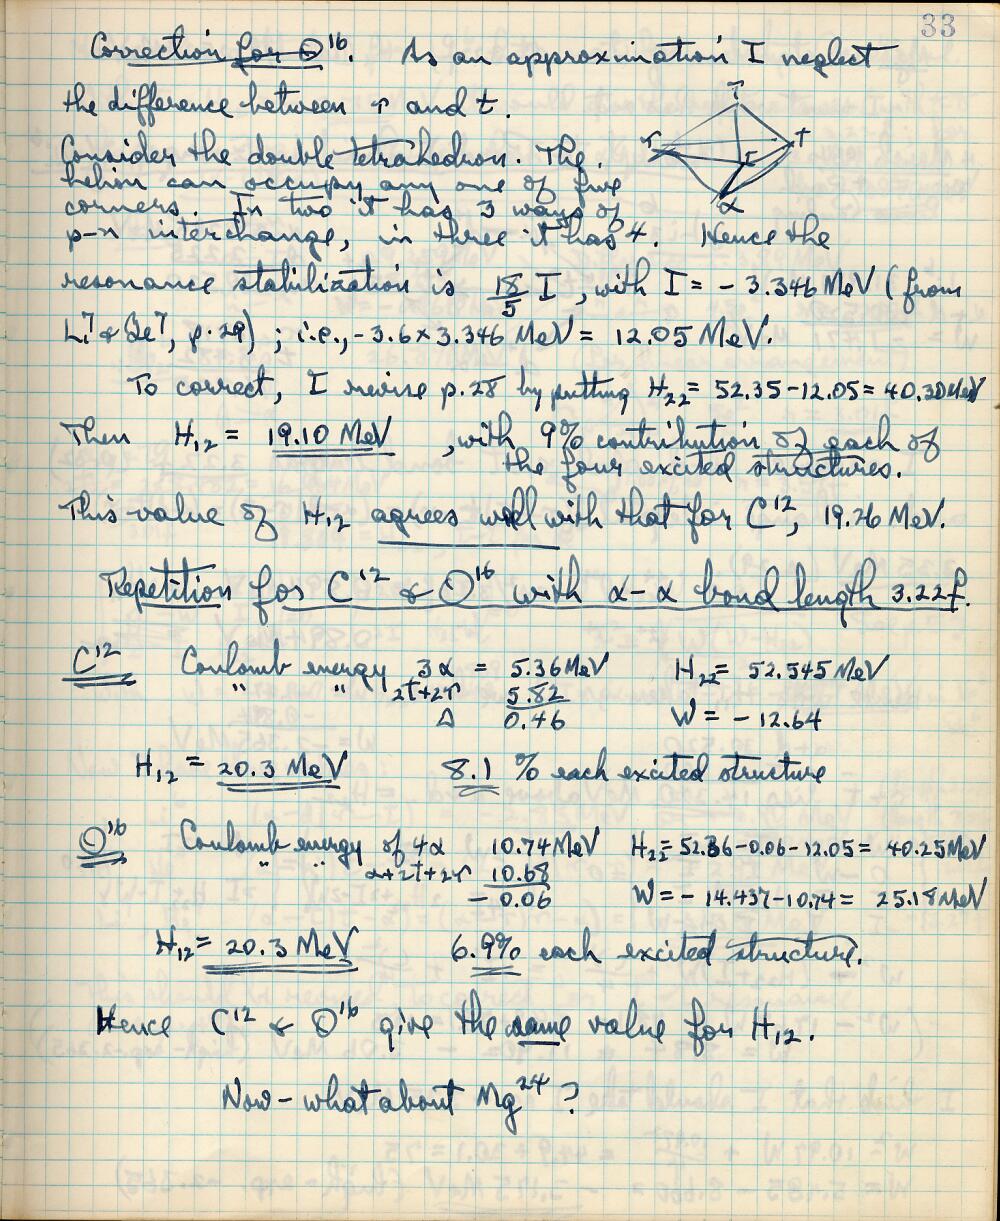 33
Correction for O¹⁶. As an approximation I neglect
the difference between τ and t.
Consider the double tetrahedron. The
helion can occupy any one of five
corners. In two it has 3 ways of
p-n interchange, in three it has 4. Hence the
resonance stabilization is 18/5 I, with I = - 3.346 MeV (from
Li⁷ & Be⁷, p. 29) ; i.e., -3.6 × 3.346 MeV = 12.05 MeV.
To correct, I revise p. 28 by putting H₂₂ = 52.35 - 12.05 = 40.30 MeV
Then H₁₂ = 19.10 MeV , with 9% contribution of each of
the four excited structures.
This value of H₁₂ agrees well with that for C¹², 19.26 MeV.
Repetition for C¹² & O¹⁶ with α-α bond length 3.22 f.
C¹² Coulomb energy 3α = 5.36 MeV H₂₂ = 52.545 MeV
" " 2t+2τ 5.82
Δ 0.46 W = - 12.64
H₁₂ = 20.3 MeV 8.1 % each excited structure
O¹⁶ Coulomb energy of 4α 10.74 MeV H₂₂ = 52.36 - 0.06 - 12.05 = 40.25 MeV
" " α+2t+2τ 10.68
- 0.06 W = - 14.437 - 10.74 = 25.18 MeV
H₁₂ = 20.3 MeV 6.9% each excited structure.
Hence C¹² & O¹⁶ give the same value for H₁₂.
Now - what about Mg²⁴ ?